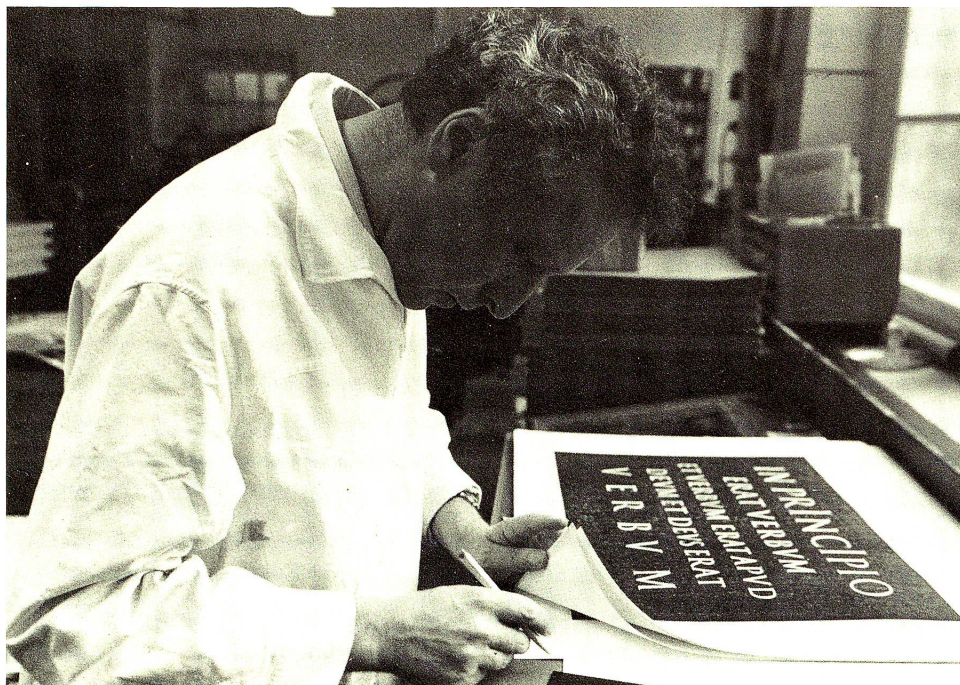 IN PRINCIPIO
ERAT VERBVM
ET VERBVM ERAT APVD
DEVM ET DEVS ERAT
VERBVM